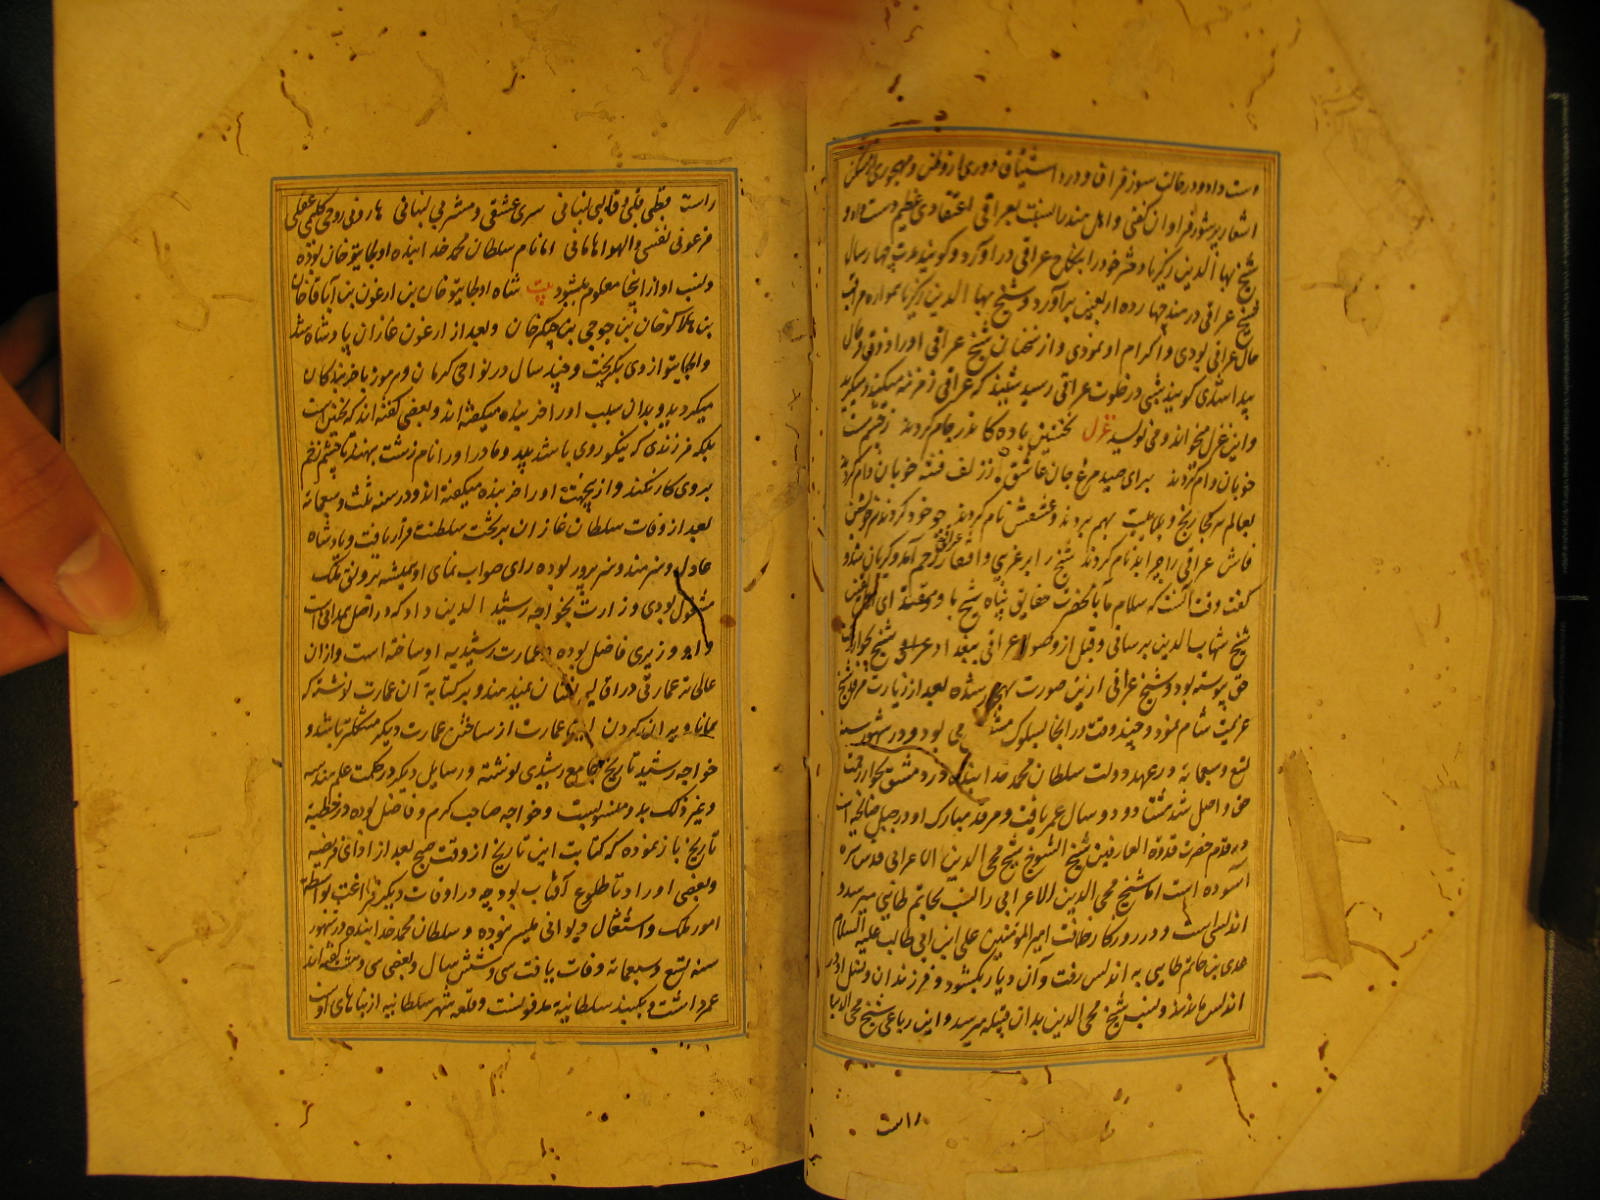 دست داد و در غالب سوز فراق و درد اشتیاق دوری از وطن و مهجوری از مسکن
اشعار پرشور فراوان گفتی و اهل هند را نسبت بعراقی اعتقادی عظیم دست داد و
شیخ بهاء الدین زکریا دختر خود را بنکاح عراقی در آورد و گویند مدت چهار سال
شیخ عراقی در هند چهارده اربعین برآورد و شیخ بهاء الدین زکریا همواره مراقب
حال عراقی بودی و اکرام او نمودی و از سخنان شیخ عراقی او را ذوقی و حال
پیدا شدی گویند شبی در خلوت عراقی رسید شنید که عراقی زمزمه میکند و میگرید
و این غزل میخواند و می نویسد غزل نخستین باده کاندر جام کردند ز چشم مست
خوبان وام کردند برای صید مرغ جان عاشق ز زلف فتنه خوبان دام کردند
بعالم هر کجا رنج و بلا نیست بهم بردند و عشقش نام کردند چو خود کردند سر خویشتن
فاش عراقی را چرا بدنام کردند شیخ را بر غریبی و افتقار عراقی رحم آمد و گریان شد و
گفت وقت آنست که سلام ما بآنحضرت حقایق پناه شیخ با و مقتدای اهل یقین
شیخ شهاب الدین برسانی و قبل از وصول عراقی ببغداد شیخ بجوار
حق پیوسته بود و شیخ عراقی ازین صورت شده بعد از زیارت مرقد شیخ
عزیمت شام نمود و چند وقت در آنجا بسلوک مشغول می بود و در شهور سنه
تسع و سبعمایه در عهد دولت سلطان محمد خدابنده در دمشق بجوار رحمت
حق واصل شد هشتاد و دو سال عمر یافت و مرقد مبارک او در جبل صالحیه است
و در قدم حضرت قدوة العارفین شیخ الشیوخ شیخ محی الدین الاعرابی قدس سره
آسوده است اما شیخ محی الدین الاعرابی را نسب بحاتم طائی میرسد و
اندلسی است و در روزگار خلافت امیر المؤمنین علی ابن ابی طالب علیه السلام
عدی بن حاتم طایی به اندلس رفت و آن دیار بگشود و فرزندان و نسل او در
اندلس ماندند و نسب شیخ محی الدین بدان قبیله میرسد و این رباعی شیخ محی الدین
راست
راست قبطی قلبی و قالبی لبنانی سری عشقی و مشربی لبنانی هارونی روحی کلیمی عقلی
فرعونی نفسی و الهوا هامانی اما نام سلطان محمد خدابنده اولجایتو خان بوده
و نسب او از اینجا معلوم میشود بیت شاه اولجایتو خان بن ارغون بن آباقا خان
بن هلاکو خان بن جوجی بن چنگز خان و بعد از ارغون غازان پادشاه شد
و الجایتو از وی بگریخت و چند سال در نواحی کرمان و هرموز با خربندگان
میگردید و بدان سبب او را خربنده میگفته اند و بعضی گفته اند که نچنین است
بلکه فرزندی که نیکو روی باشد پدر و مادر او را نام زشت نهند تا چشم زخم
بروی کار نکند و ازینجهت او را خربنده میگفته اند و در سنه ثلث و سبعمایه
بعد از وفات سلطان غازان بر تخت سلطنت قرار یافت و پادشاه
عادل و هنرمند و هنرپرور بوده رای صواب نمای او همیشه برونق ملک
مشغول بودی و وزارت بخواجه رشید الدین داد که در اصل همدانی است
و او وزیری فاضل بوده و عمارت رشیدیه او ساخته است و از آن
عالی تر عمارتی در اقالیم نشان نمیدهند و بر کتابه آن عمارت نوشته که
همانا ویران کردن این عمارت از ساختن عمارت دیگر مشکلتر باشد و
خواجه رشید تاریخ جامع رشیدی نوشته و رسایل دیگر در حکمت علم هندسه
و غیر ذلک بدو منسوبست و خواجه صاحب کرم و فاضل بوده در خطبه
تاریخ باز نموده که کتابت این تاریخ از وقت صبح بعد از ادای فریضه
و بعضی اوراد تا طلوع آفتاب بود چه در اوقات دیگر فراغت بواسطه
امور ملک و اشتغال دیوانی میسر نبوده و سلطان محمد خدابنده در شهور
سنه تسع و سبعمایه وفات یافت سی و شش سال و بعضی سی و هشت گفته اند
عمر داشت و بگنبد سلطانیه مدفونست و قلعه شهر سلطانیه از بناهای اوست